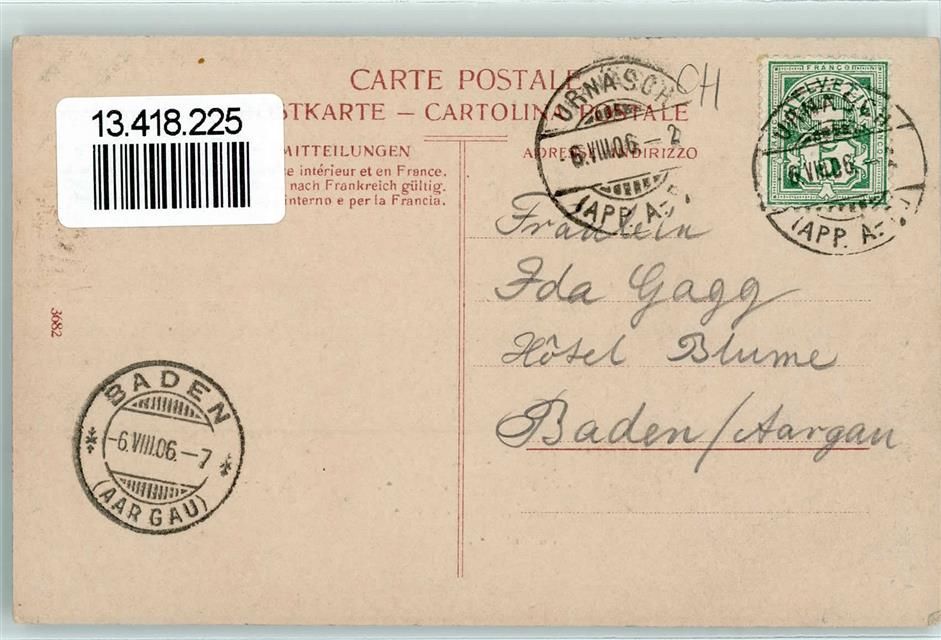 CARTE POSTALE
STKARTE – CARTOLINA POSTALE
13.418.225
MITTEILUNGEN
e intérieur et en France.
nach Frankreich gültig.
interno e per la Francia.
ADRESSE INDIRIZZO
URNÄSCH
6.VIII.06.–2
(APP. A.
CH
FRANCO
HELVETIA
URNÄ
6.VIII.06.–
(APP. A.
Fräulein
Ida Gagg
Hôtel Blume
Baden/Aargau
3682
BADEN
–6.VIII.06.–7
(AARGAU)